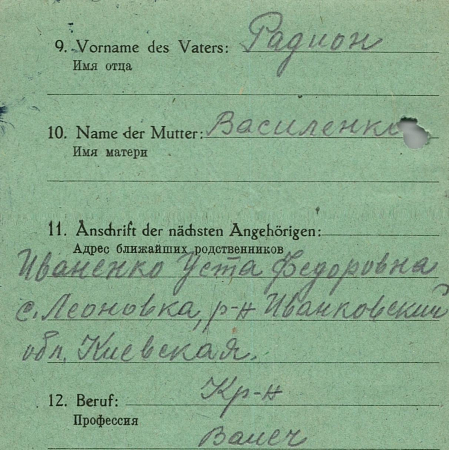 9. Vorname des Vaters: Радион
Имя отца
10. Name der Mutter: Василенко
Имя матери
11. Anschrift der nächsten Angehörigen:
Адрес ближайших родственников
Иваненко Уста Федоровна
с. Леоновка, р-н Иванковский
обл. Киевская.
12. Beruf: Кр-н
Профессия